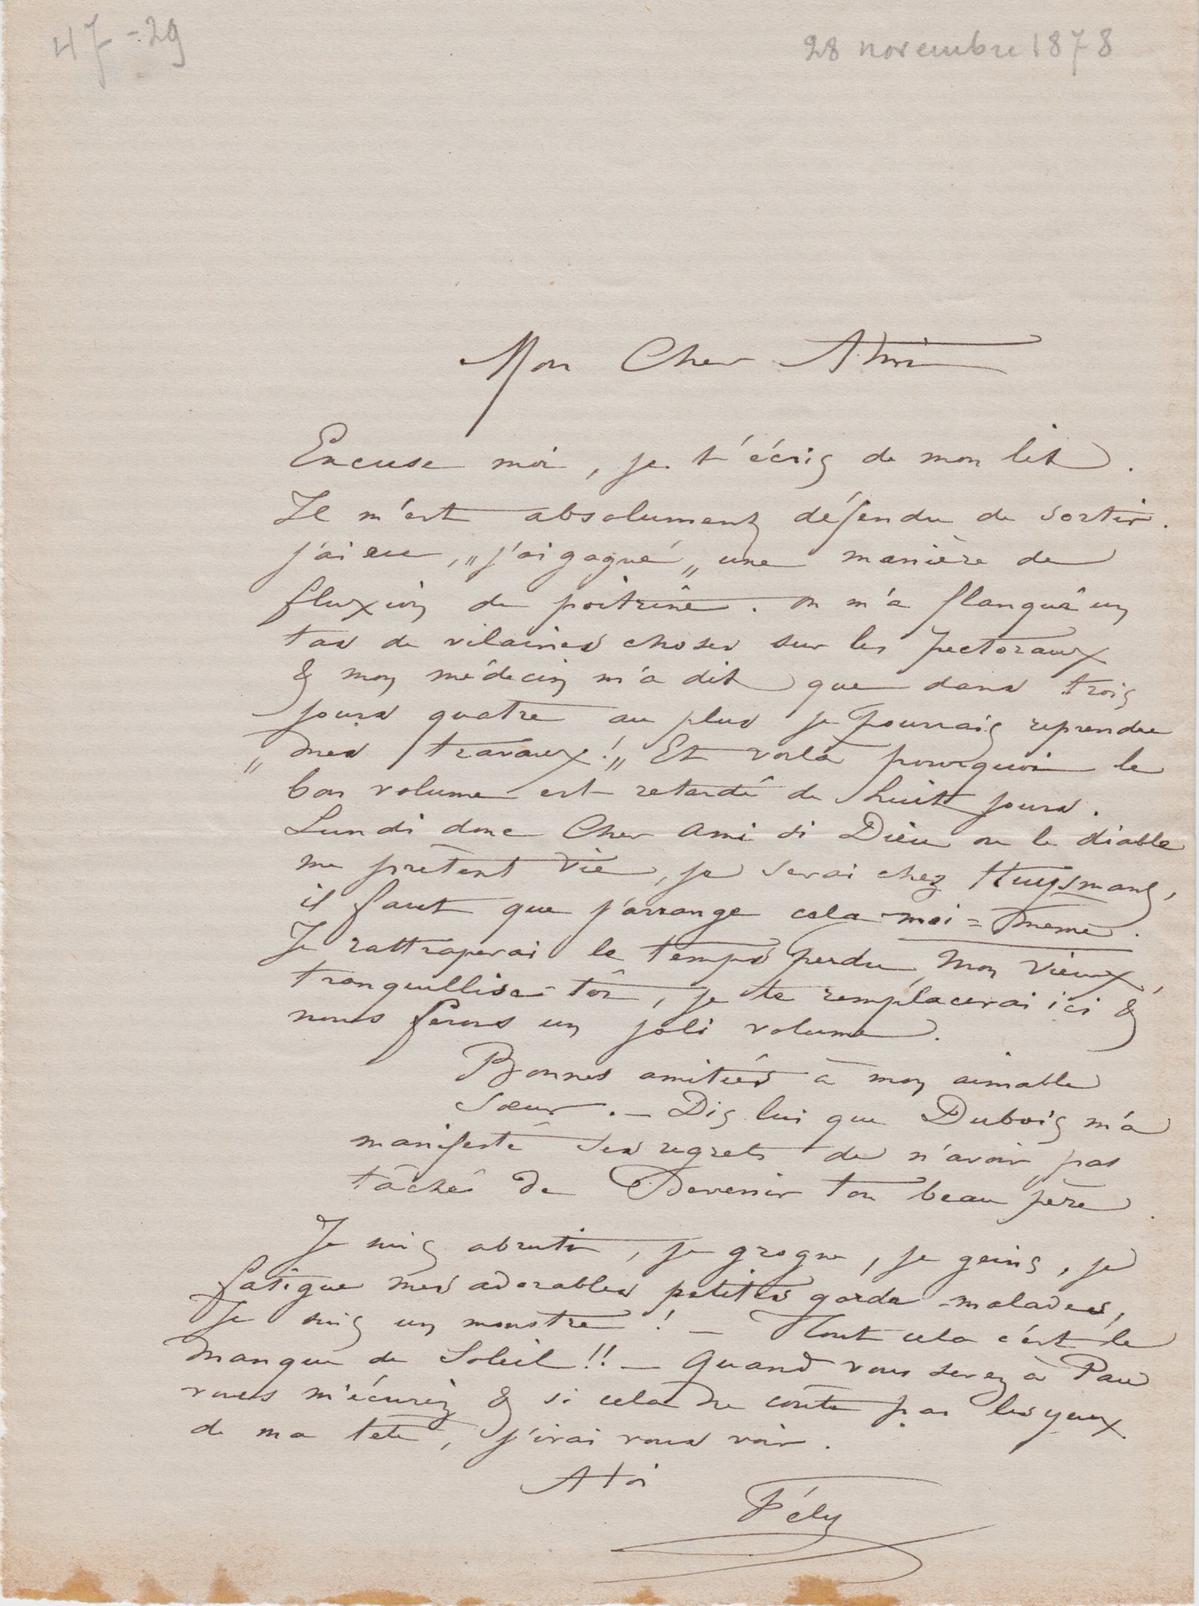 47-29
28 novembre 1878
Mon Cher
Excuse moi, je t'écris de mon lit.
Il m'est absolument défendu de sortir.
j'ai eu, „ j'ai gagné „ une manière de
fluxion de poitrine. on m'a flanqué un
tas de vilaines choses sur les pectoraux
& mon médecin m'a dit que dans trois
jours quatre au plus je pourrais reprendre
„ mes travaux! „ Et voila pourquoi le
bon volume est retardé de huit jours.
Lundi donc Cher ami si Dieu ou le diable
me prètent vie, je serai chez Huysmans,
il faut que j'arrange cela moi=meme.
Je rattraperai le temps perdu, Mon vieux,
tranquillise-toi, je te remplacerai ici &
nous ferons un joli volume.
Bonnes amitiés à mon aimable
sœur. — Dis lui que Dubois m'a
manifesté ses regrets de n'avoir pas
tâché de Devenir ton beau père.
Je suis abruti, je grogne, je geins, je
fatigue mes adorables petites garde-malades,
Je suis un monstre! — Tout cela c'est le
manque de Soleil!! — Quand vous serez à Pau
vous m'écrirez & si cela ne coûte pas les yeux
de ma tete, j'irai vous voir.
A toi
Fély